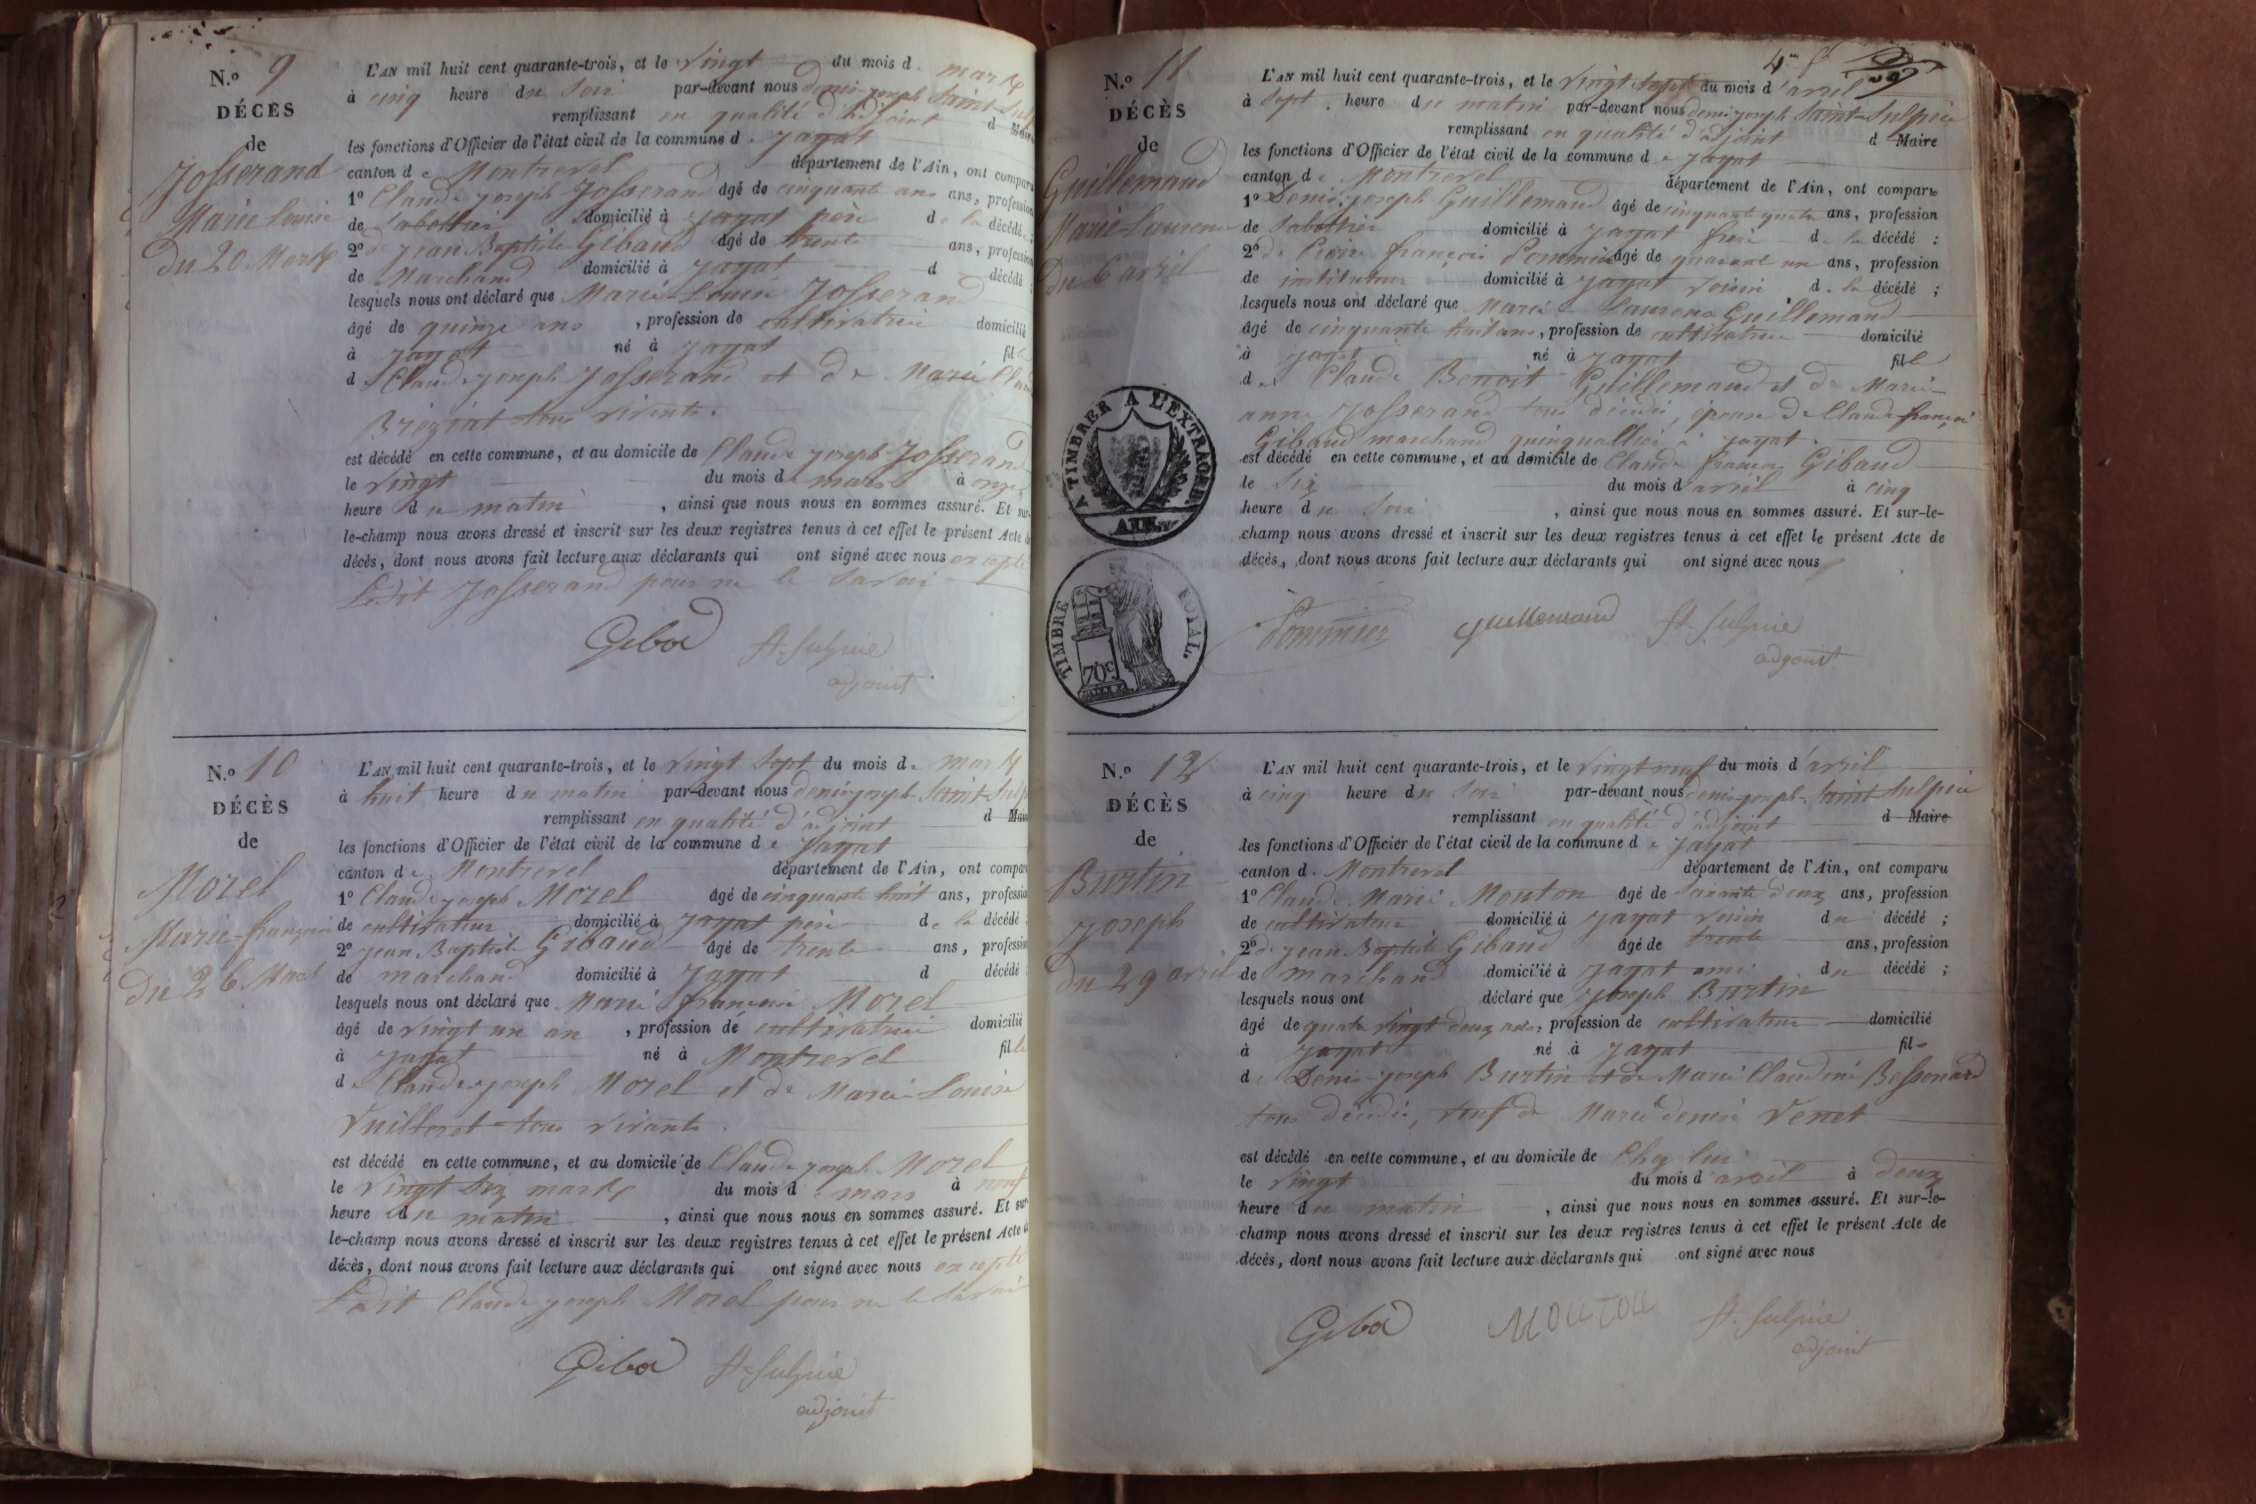 N.º 9
DÉCÈS
de
Josserand
Marie Louise
du 20 Mars
L'AN mil huit cent quarante-trois, et le vingt du mois de mars
à cinq heure du soir par-devant nous denis-joseph Saint-Sulp
remplissant en qualité d'adjoint d Maire
les fonctions d'Officier de l'état civil de la commune d. jayat
canton de Montrevel département de l'Ain, ont comparu
1º Claude joseph Josserand âgé de cinquante ans ans, profession
de Sabottier domicilié à jayat père de la décédée;
2º jean Baptiste Gibaud âgé de trente ans, profession
de Marchand domicilié à jayat d décédé;
lesquels nous ont déclaré que Marie Louise Josserand
âgé de quinze ans, profession de cultivatrice domicilié
à jayat né à jayat fille
de Claude joseph Josserand et de Marie Clau
Bréziat tous vivants.
est décédé en cette commune, et au domicile de Claude joseph Josserand
le vingt du mois de mars à onze
heure du matin, ainsi que nous nous en sommes assuré. Et sur-
le-champ nous avons dressé et inscrit sur les deux registres tenus à cet effet le présent Acte de
décès, dont nous avons fait lecture aux déclarants qui ont signé avec nous excepté
Ledit Josserand pour ne le savoir
Gibod St-Sulpice
adjoint
N.º 10
DÉCÈS
de
Morel
Marie-françoise
du 26 Mars
L'AN mil huit cent quarante-trois, et le vingt sept du mois de mars
à huit heure du matin par-devant nous denis joseph Saint-Sulp
remplissant en qualité d'adjoint d Maire
les fonctions d'Officier de l'état civil de la commune de jayat
canton de Montrevel département de l'Ain, ont comparu
1º Claude joseph Morel âgé de cinquante huit ans, profession
de cultivateur domicilié à jayat père de la décédé
2º jean Baptiste Gibaud âgé de trente ans, profession
de marchand domicilié à jayat d décédé
lesquels nous ont déclaré que Marie françoise Morel
âgé de vingt un an, profession de cultivatrice domicilié
à jayat né à Montrevel fille
de Claude joseph Morel et de Marie-Louise
Vuilleret tous vivants.
est décédé en cette commune, et au domicile de Claude joseph Morel
le vingt six mars du mois de mars à neuf
heure du matin, ainsi que nous nous en sommes assuré. Et sur-
le-champ nous avons dressé et inscrit sur les deux registres tenus à cet effet le présent Acte de
décès, dont nous avons fait lecture aux déclarants qui ont signé avec nous excepté
Ledit Claude joseph Morel pour ne le savoir
Gibod St-Sulpice
adjoint
4me f
N.º 11
DÉCÈS
de
Guillemaud
Marie-Laurence
du 6 avril
L'AN mil huit cent quarante-trois, et le vingt sept du mois d'avril
à Sept heure du matin par-devant nous denis joseph Saint-Sulpice
remplissant en qualité d'adjoint d Maire
les fonctions d'Officier de l'état civil de la commune de jayat
canton de Montrevel département de l'Ain, ont comparu
1º Denis joseph Guillemaud âgé de cinquante quatre ans, profession
de Sabottier domicilié à jayat frère de la décédé;
2º de Pierre françois Pommier âgé de quarante un ans, profession
de instituteur domicilié à jayat voisin de la décédé;
lesquels nous ont déclaré que Marie Laurence Guillemaud
âgé de cinquante huit ans, profession de cultivatrice domicilié
à jayat né à jayat fille
de Claude Benoit Guillemaud et de Marie-
anne Josserand tous décédés, épouse de Claude françois
Gibaud marchand quinquallier à jayat.
est décédé en cette commune, et au domicile de Claude françois Gibaud
le Six du mois d'avril à cinq
heure du Soir, ainsi que nous nous en sommes assuré. Et sur-le-
champ nous avons dressé et inscrit sur les deux registres tenus à cet effet le présent Acte de
décès, dont nous avons fait lecture aux déclarants qui ont signé avec nous
Pommier guillemaud St-Sulpice
adjoint
A TIMBRER A L'EXTRAORD.
AIN
TIMBRE ROYAL.
70c
N.º 12
DÉCÈS
de
Burtin
joseph
du 29 avril
L'AN mil huit cent quarante-trois, et le vingt neuf du mois d'avril
à cinq heure du Soir par-devant nous denis joseph Saint Sulpice
remplissant en qualité d'adjoint d Maire
les fonctions d'Officier de l'état civil de la commune de jayat
canton d. Montrevel département de l'Ain, ont comparu
1º Claude Marie Mouton âgé de soixante deux ans, profession
de cultivateur domicilié à jayat voisin du décédé;
2º de jean Baptiste Gibaud âgé de trente ans, profession
de marchand domicilié à jayat ami du décédé;
lesquels nous ont déclaré que joseph Burtin
âgé de quatre vingt deux ans, profession de cultivateur domicilié
à jayat né à jayat fils
de Denis-joseph Burtin et de Marie Claudine Bessonard
tous décédés, veuf de Marie denise Venet
est décédé en cette commune, et au domicile de Chez lui
le vingt du mois d'avril à deux
heure du matin, ainsi que nous nous en sommes assuré. Et sur-le-
champ nous avons dressé et inscrit sur les deux registres tenus à cet effet le présent Acte de
décès, dont nous avons fait lecture aux déclarants qui ont signé avec nous
Gibod Mouton St-Sulpice
adjoint